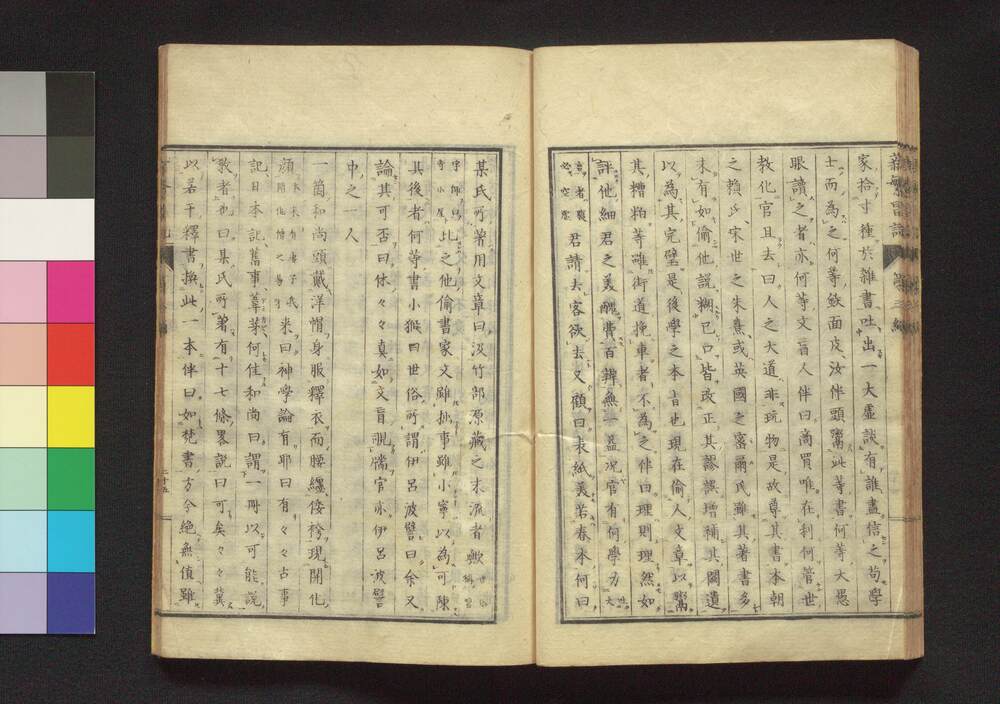 家拾寸種於雜書吐出一大虛談有誰盡信之苟學
士而為之何等鉄面皮汝伴頭鬻此等書何等大愚
眼讀之者亦何等文盲人伴曰商買唯在利何管世
教化官且去曰人之大道非玩物是故尊其書本朝
之賴氏宋世之朱熹或英國之蜜爾氏雖其著書多
未有如偷他說糊已口皆改正其謬誤增補其闕遺
以為其完璧是後學之本旨也現在偷人文章以鬻
其糟粕等雖街道挽車者不為之伴曰理則理然如
評他細君之美醜費百辨無一益况官有何學力
君請去客欲去又顧曰表紙美若春本何曰
某氏所著用文章曰汲竹部原藏之末流者歟
比之他偷書家文雖拙事雖小寧以為可陳
其後者何等書小猴曰世俗所謂伊呂波譬曰余又
論其可否曰休々真如文盲覗懦官亦伊呂波譬
中之一人
一箇和尚頭戴洋帽身服釋衣而腰纏俀袴現開化
顔 來曰神學論有耶曰有々々古事
記日本記舊事尊萊何佳和尚曰謂一冊以可能說
教者也曰某氏所著有十七條畧說曰可矣々々冀
以若干釋書換此一本伴曰如梵書方今絕無價雖
二十五